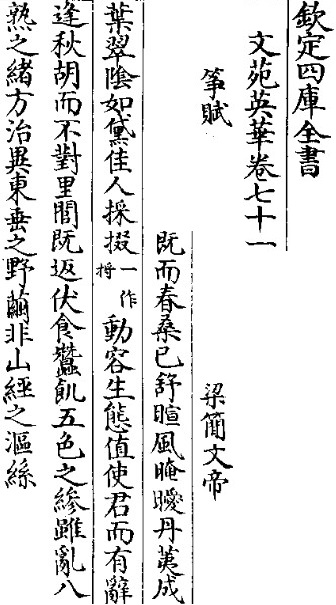 欽定四庫全書
文苑英華卷七十一
箏賦
梁簡文帝
既而春桑已舒暄風晻曖丹荑成
葉翠陰如黛佳人採掇一作將動容生態值使君而有辭
逢秋胡而不對里閭既返伏食蠶飢五色之縿雖亂八
熟之緒方治異東垂之野繭非山經之漚絲